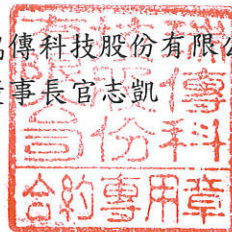 傳科技股份有限公
事長官志凱
傳
份
科
合約專用章